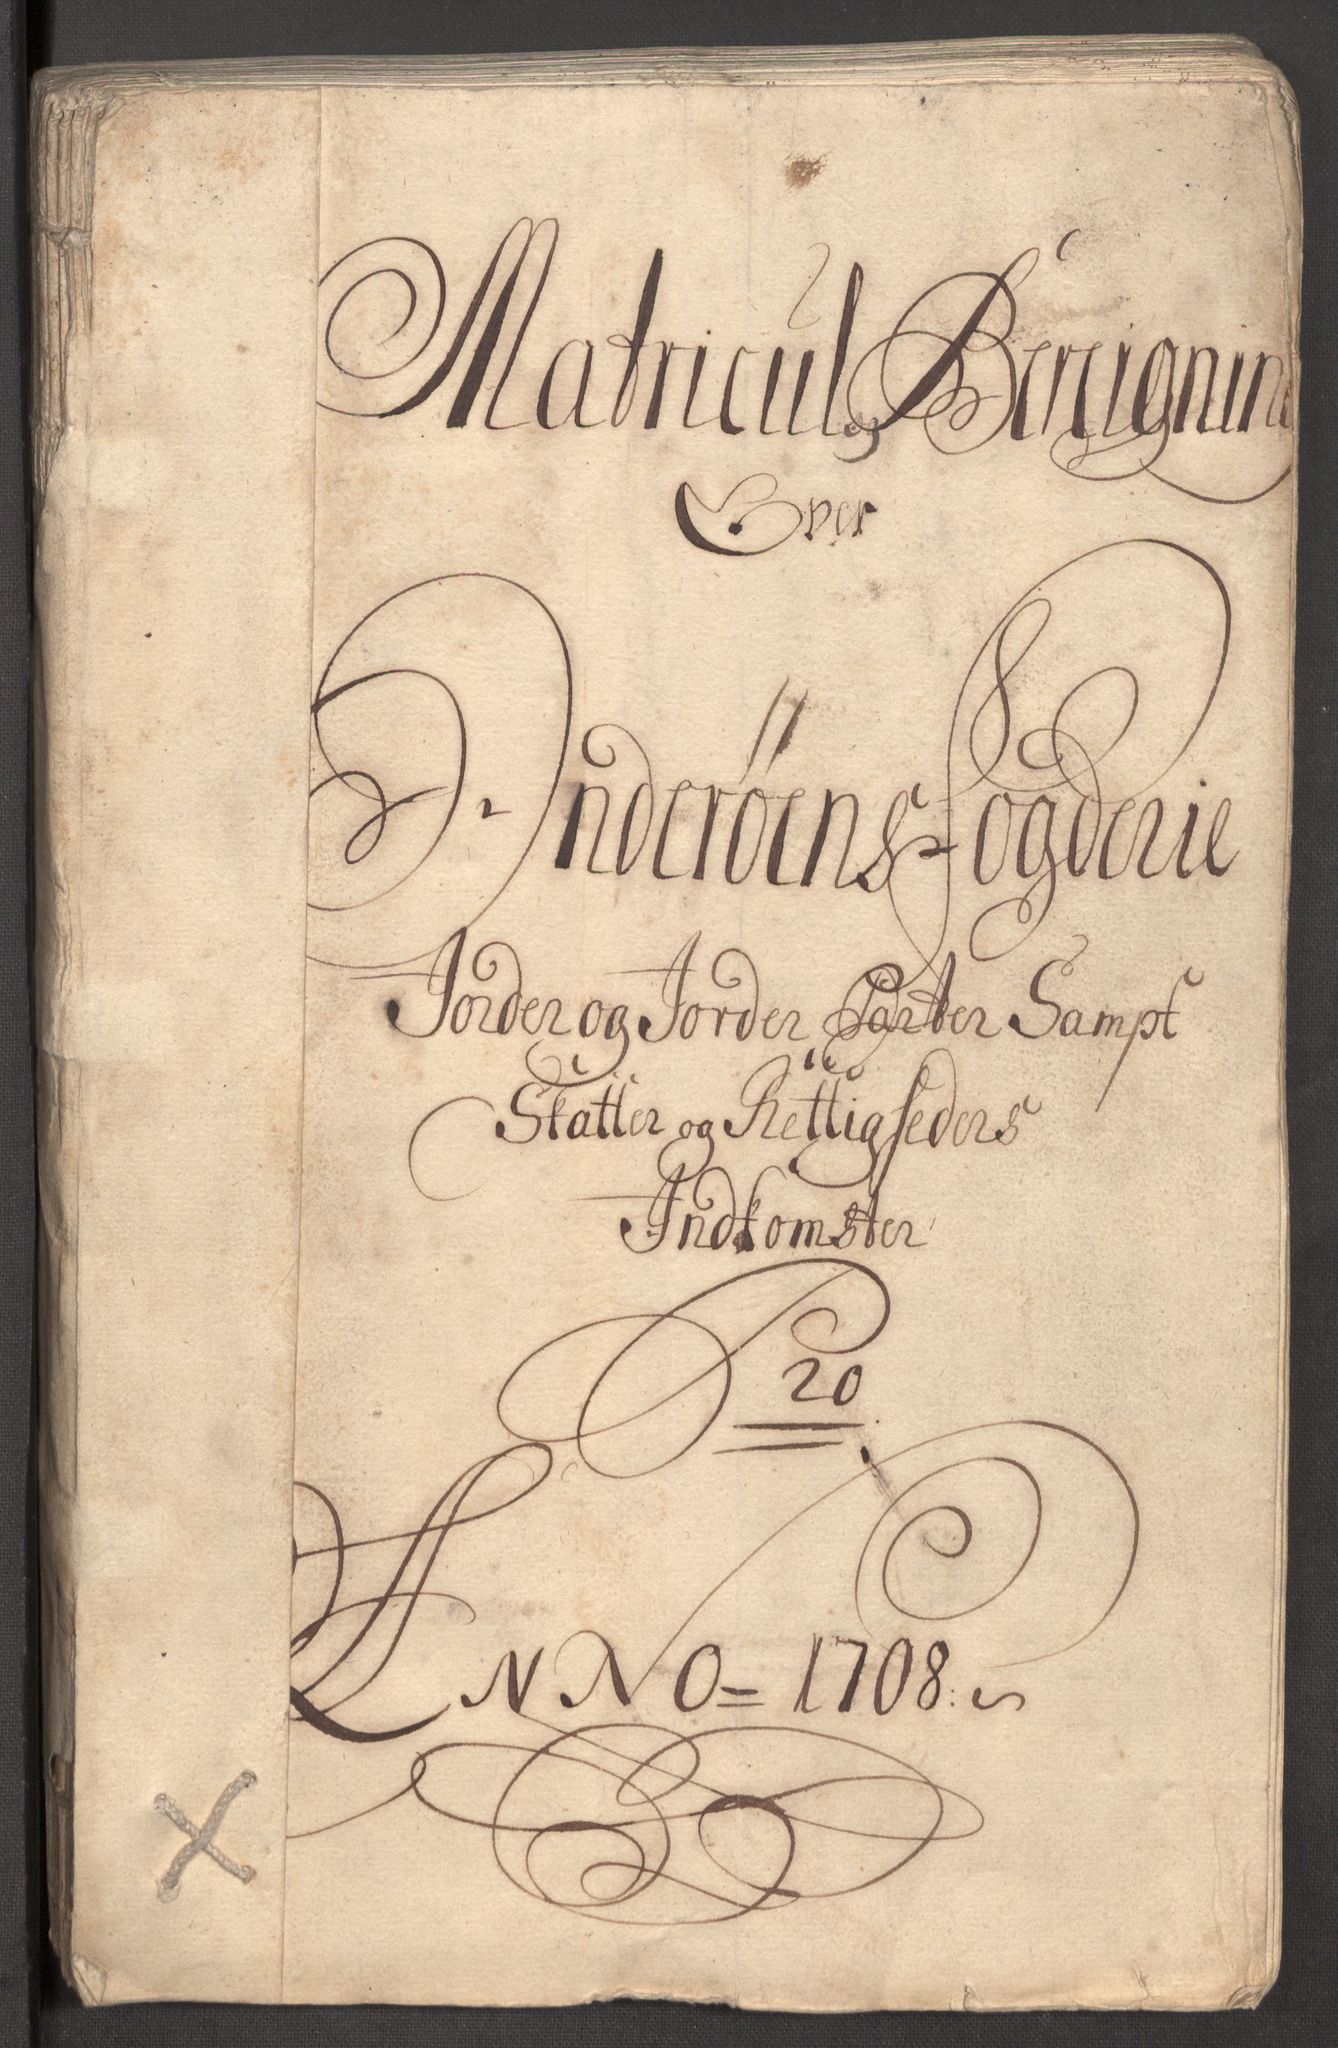 Matricul Bereigning
Over
Inderöens Fogderie
Jorder og Jorder Parter Sampt
Skatter og Rettigheders
Indkomster
20
ANNO = 1708